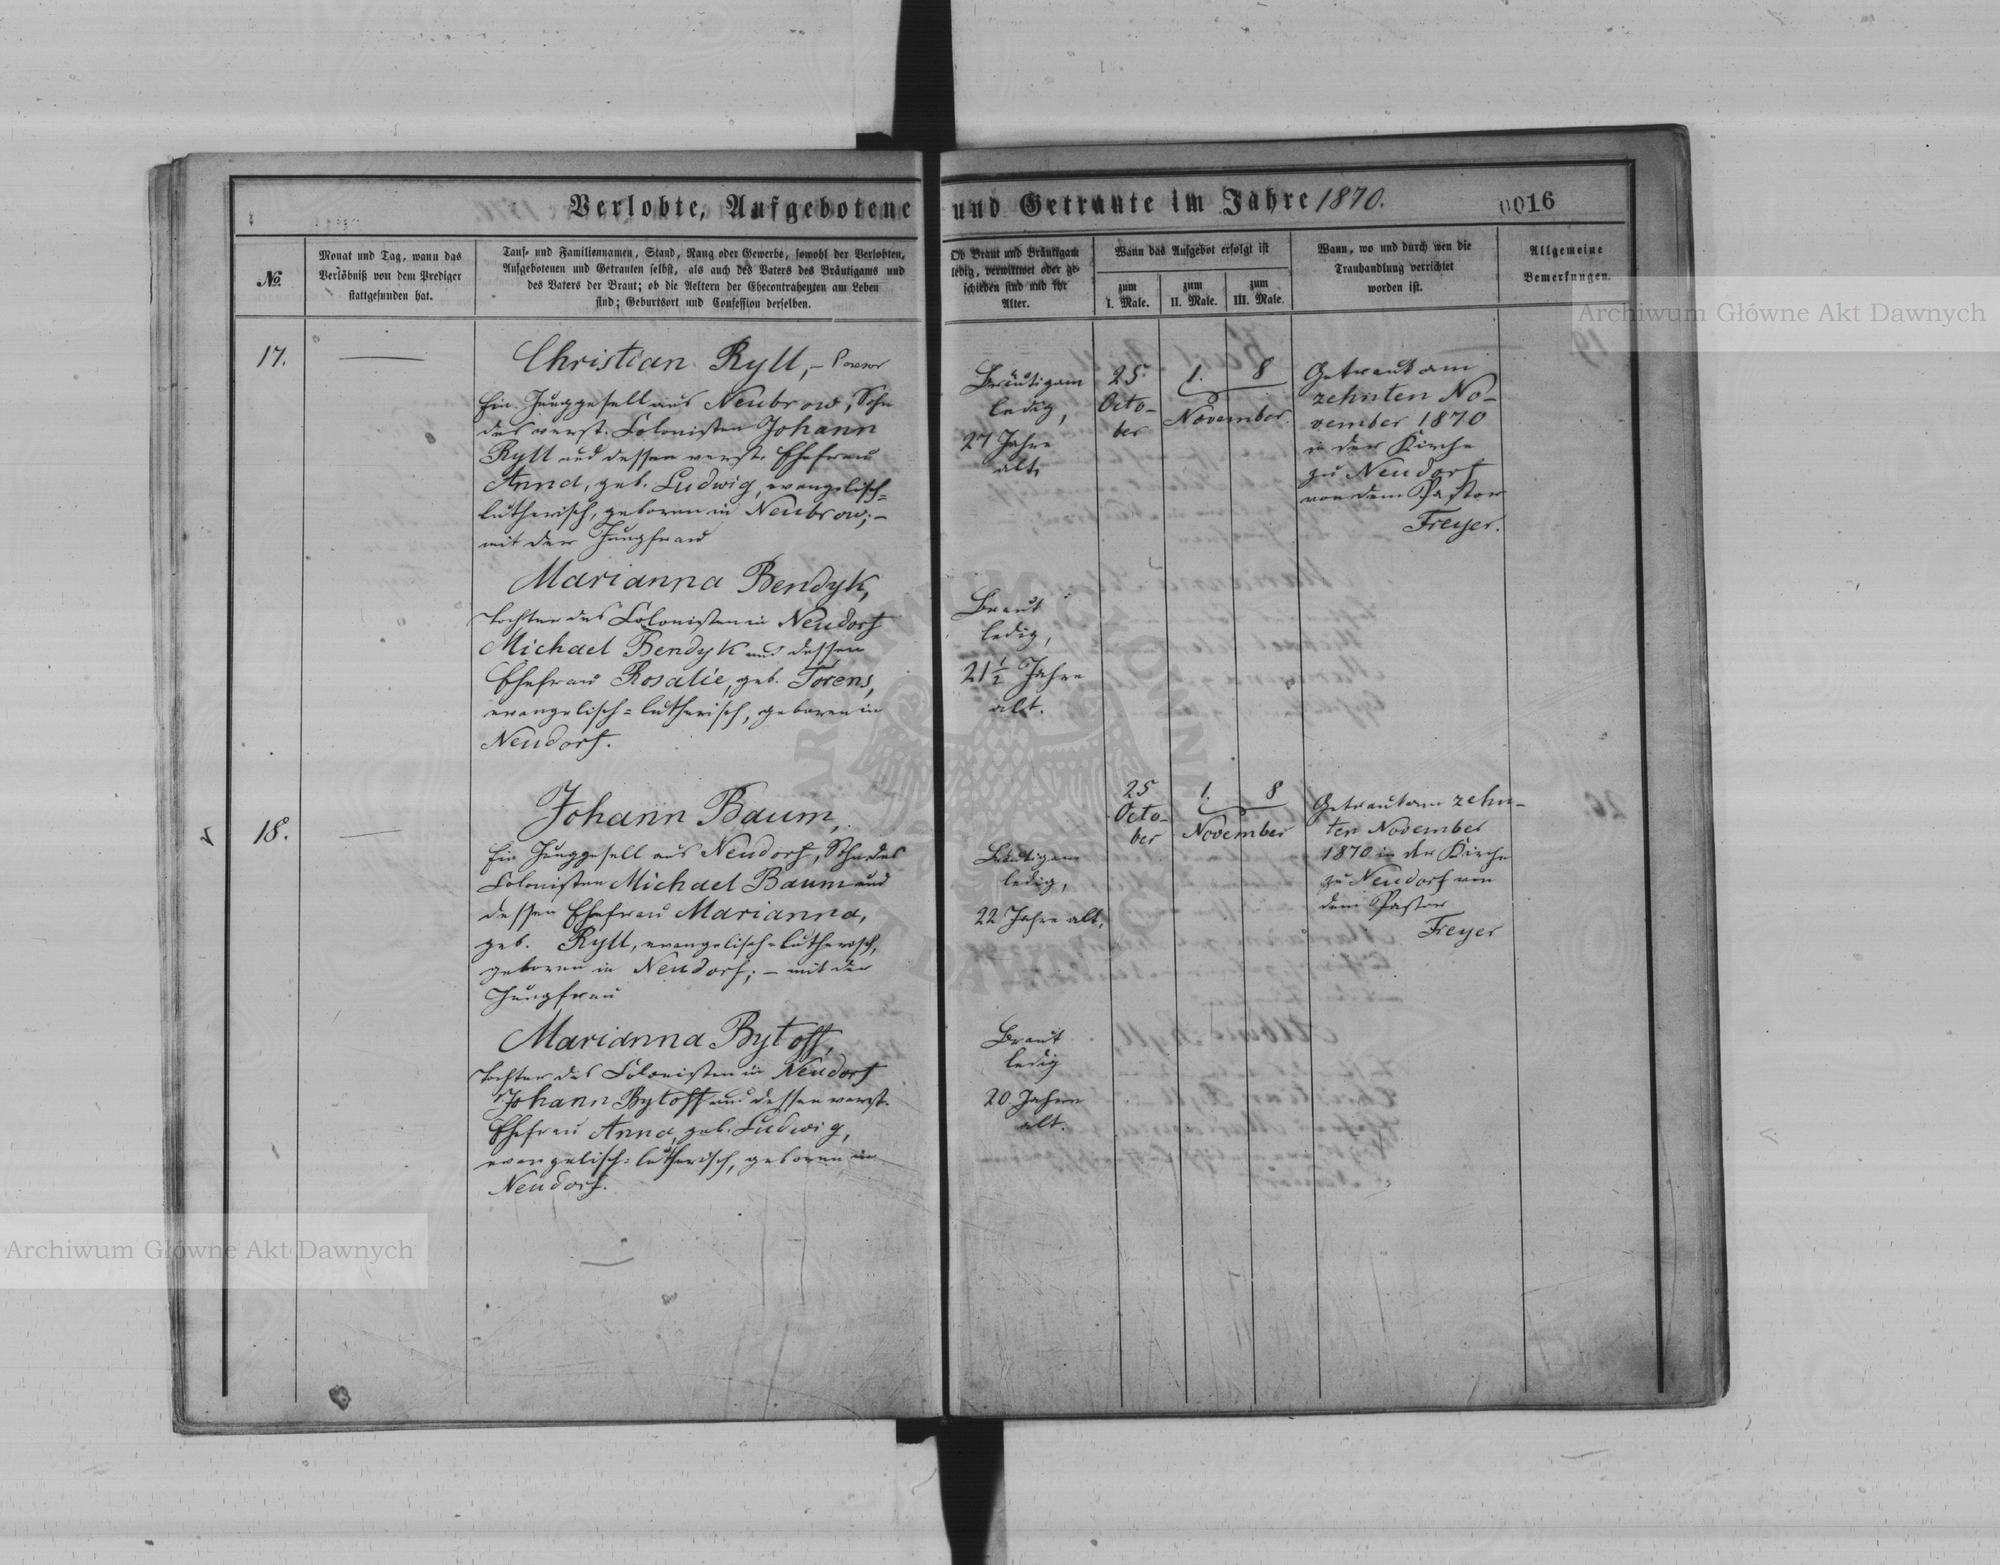 Verlobte, Aufgebotene und Getraute im Jahre 1870.
0016
No.
Monat und Tag, wann das
Verlöbniß von dem Prediger
stattgefunden hat.
Tauf- und Familiennamen, Stand, Rang oder Gewerbe, sowohl der Verlobten,
Aufgebotenen und Getrauten selbst, als auch des Vaters des Bräutigams und
des Vaters der Braut; ob die Aeltern der Ehecontrahenten am Leben
sind; Geburtsort und Confession derselben.
Ob Braut und Bräutigam
ledig, verwittwet oder ge-
schieden sind und ihr
Alter.
Wann das Aufgebot erfolgt ist
zum
I. Male.
zum
II. Male.
zum
III. Male.
Wann, wo und durch wen die
Trauhandlung verrichtet
worden ist.
Allgemeine
Bemerkungen.
17.
Christian Ryll, –
Ein Junggesell aus Neubrow, Sohn
des verst. Colonisten Johann
Ryll und dessen verst. Ehefrau
Anna, geb. Ludwig, evangelisch=
lutherisch, geboren in Neubrow; –
mit der Jungfrau
Marianna Bendyk,
Tochter des Colonisten in Neudorf
Michael Bendyk und dessen
Ehefrau Rosalie, geb. Torens,
evangelisch=lutherisch, geboren in
Neudorf.
Bräutigam
ledig,
27 Jahre
alt,
Braut
ledig,
21½ Jahre
alt.
25
Octo-
ber
1. 8
November.
Getraut am
zehnten No-
vember 1870
in der Kirche
zu Neudorf
von dem Pastor
Freyer.
18.
Johann Baum,
Ein Junggesell aus Neudorf, Sohn des
Colonisten Michael Baum und
dessen Ehefrau Marianna,
geb. Ryll, evangelisch=lutherisch,
geboren in Neudorf; – mit der
Jungfrau
Marianna Bytoff,
Tochter des Colonisten in Neudorf
Johann Bytoff und dessen verst.
Ehefrau Anna, geb. Ludwig,
evangelisch=lutherisch, geboren in
Neudorf.
Bräutigam
ledig,
22 Jahre alt.
Braut
ledig
20 Jahre
alt.
25
Octo-
ber
1. 8
November
Getraut am zehn-
ten November
1870 in der Kirche
zu Neudorf von
dem Pastor
Freyer
Archiwum Główne Akt Dawnych
Archiwum Główne Akt Dawnych
ARCHIWUM GŁÓWNE AKT DAWNYCH